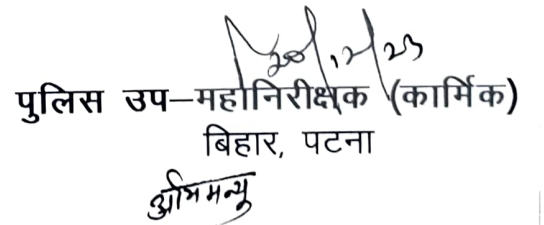 20/12/23
पुलिस उप–महानिरीक्षक (कार्मिक)
बिहार, पटना
अभिमन्यु